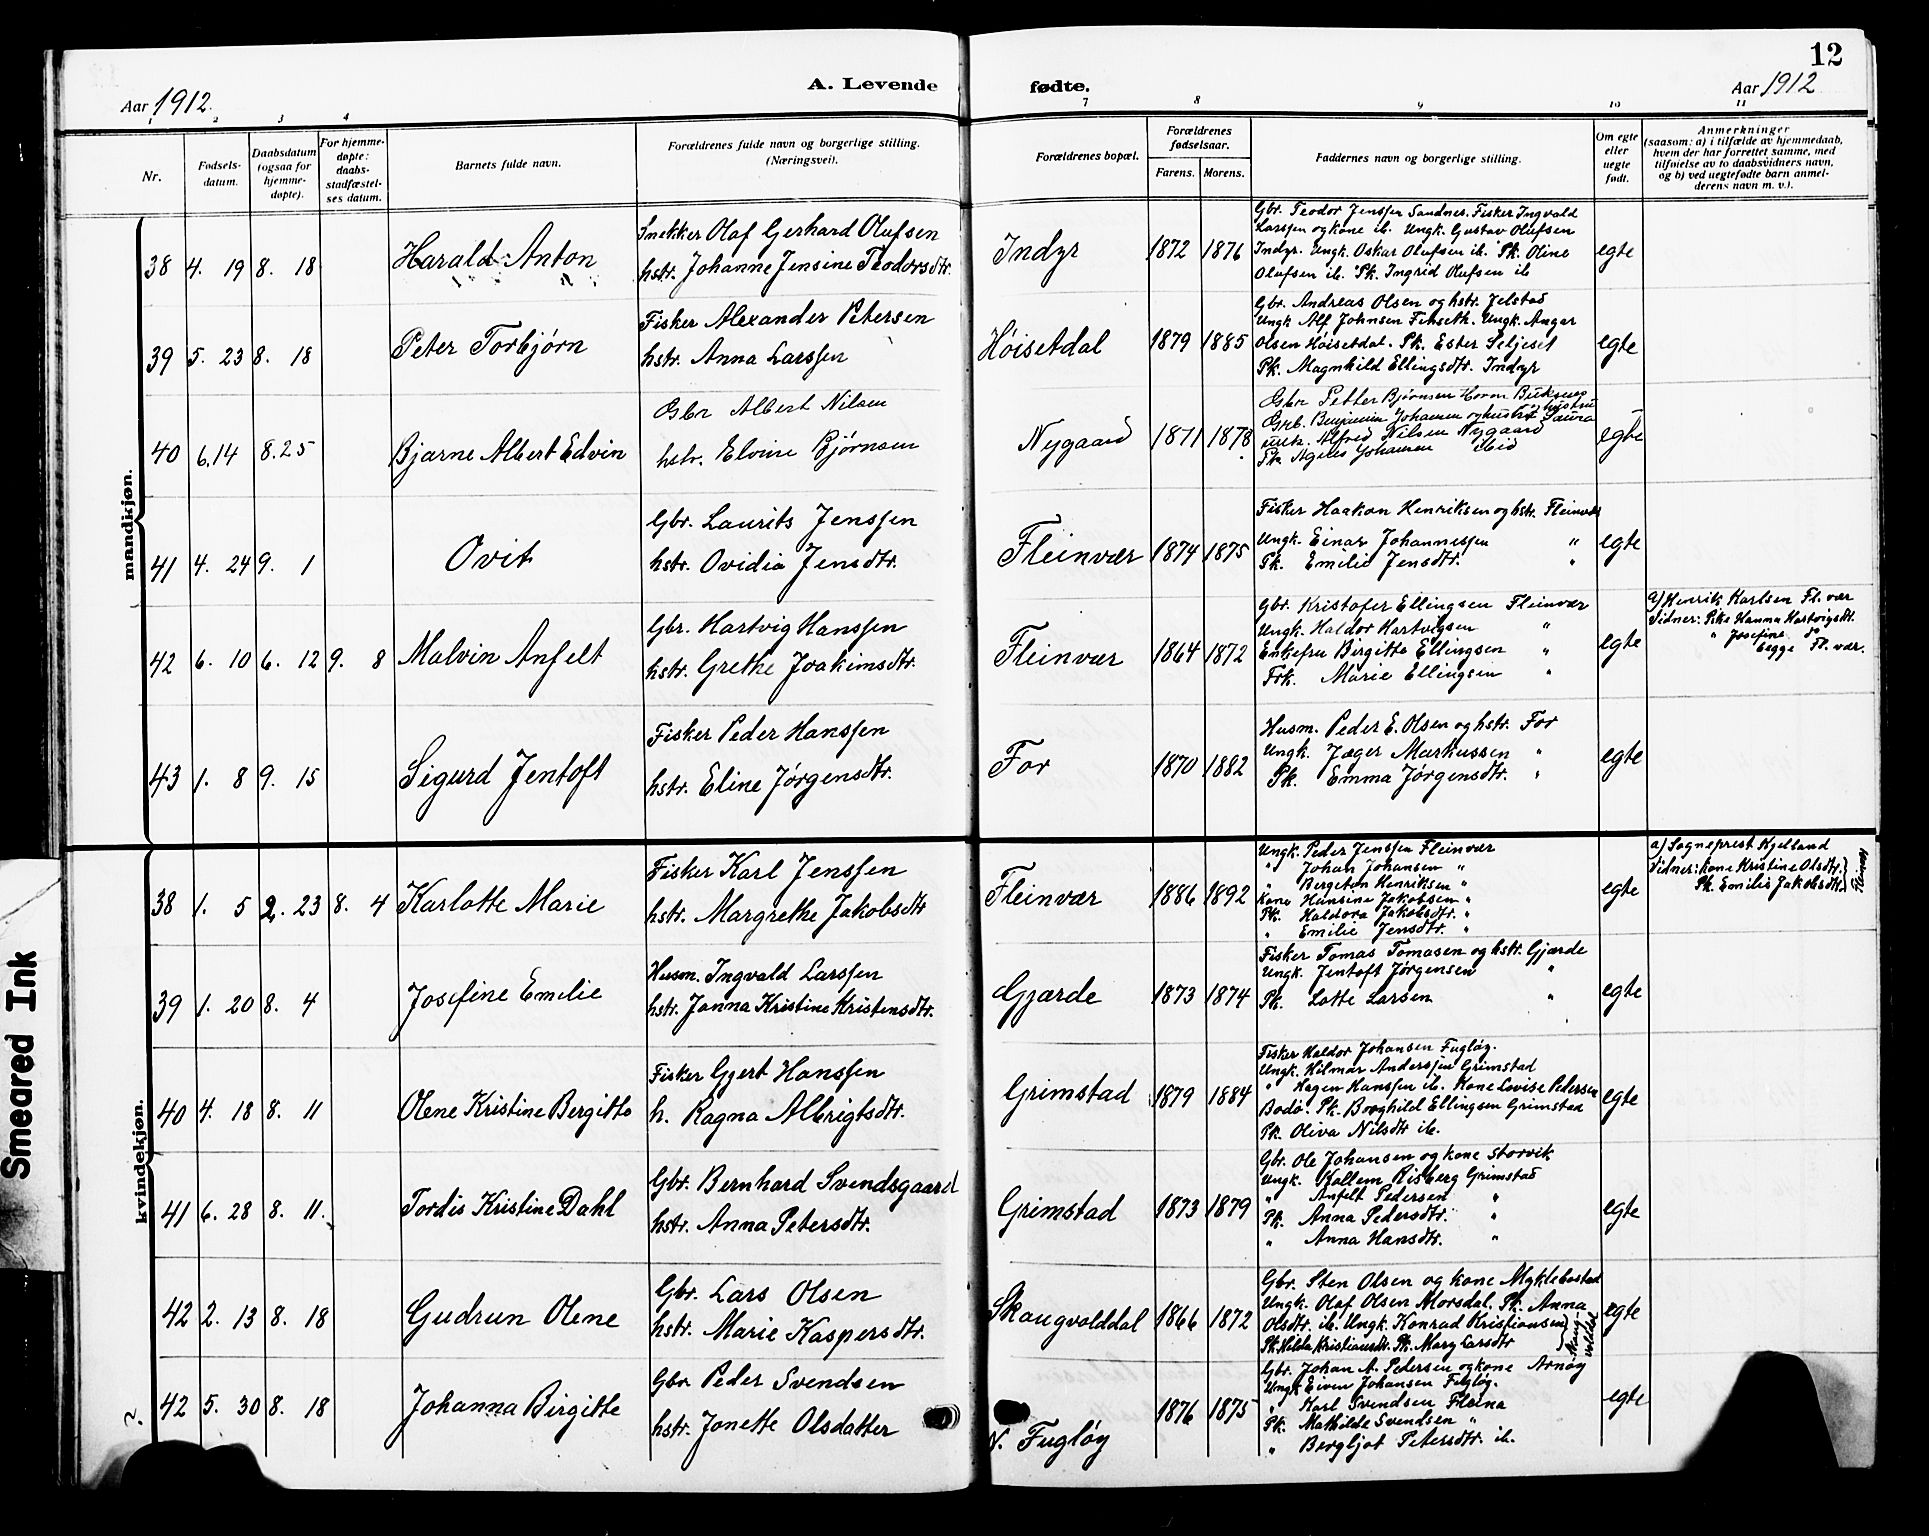 12
A. Levende fødte.
Aar 1912.
Aar 1912
1 2 3 4 7 8 9 10 11
Nr.
Fødsels-
datum.
Daabsdatum
(ogsaa for
hjemme-
døpte).
For hjemme-
døpte:
daabs-
stadfæstel-
ses datum.
Barnets fulde navn.
Forældrenes fulde navn og borgerlige stilling.
(Næringsvei).
Forældrenes bopæl.
Forældrenes
fødselsaar.
Farens. Morens.
Faddernes navn og borgerlige stilling.
Om egte
eller
uegte
født.
Anmerkninger
(saasom: a) i tilfælde av hjemmedaab,
hvem der har forrettet samme, med
tilføielse av to daabsvidners navn,
og b) ved uegtefødte barn anmel-
derens navn m. v.).
mandkjøn.
38 4. 19 8. 18
Harald Anton
Snekker Olaf Gerhard Olufsen
hstr. Johanne Jensine Teodorsdtr.
Indyr
1872 1876
Gbr. Teodor Jenssen Sandnes. Fisker Ingvald
Larssen og kone ib. Ungk. Gustav Olufsen
Indyr. Ungk. Oskar Olufsen ib. Pk. Oline
Olufsen ib. Pk. Ingrid Olufsen ib
egte
39 5. 23 8. 18
Peter Torbjørn
Fisker Alexander Petersen
hstr. Anna Larssen
Høisetdal
1879 1885
Gbr. Andreas Olsen og hstr. Jelstad
Ungk Alf Johnsen Finseth. Ungk. Ansgar
Olsen Høisetdal. Pk. Ester Seljeset
Pk. Magnhild Ellingsdtr. Indyr
egte
40 6. 14 8. 25
Bjarne Albert Edvin
Gbr Albert Nilsen
hstr. Elvine Bjørnsen
Nygaard
1871 1878
Gbr Petter Bjørnsen
Gbr. Benjamin Johansen og hustru Saura
ungk. Alfred Nilsen Nygaard
Pk Agnes Johansen ibid
egte
41 4. 24 9. 1
Ovit
Gbr. Laurits Jenssen
hstr. Ovidia Jensdtr.
Fleinvær
1874 1875
Fisker Haakon Henriksen og hstr. Fleinvær
Ungk. Einar Johannessen "
Pk. Emilie Jensdtr. "
egte
42 6. 10 6. 12 9. 8
Malvin Anfelt
Gbr. Hartvig Hanssen
hstr. Grethe Joakimsdtr.
Fleinvær
1864 1872
Gbr. Kristofer Ellingsen Fleinvær
Ungk. Haldor Hartvigsen "
Enkefru Birgitte Ellingsen "
Frk. Marie Ellingsen "
egte
a) Henrik Karlsen Fl. vær
Vidner: Pike Hanna Hartvigsdt.
" Josefine do
begge Fl. vær.
43 1. 8 9. 15
Sigurd Jentoft
Fisker Peder Hanssen
hstr. Eline Jørgensdtr.
For
1870 1882
Husm. Peder E. Olsen og hstr. For
Ungk. Jæger Markussen "
Pk. Emma Jørgensdtr. "
egte
kvindekjøn.
38 1. 5 2. 23 8. 4
Karlotte Marie
Fisker Karl Jenssen
hstr. Margrethe Jakobsdtr
Fleinvær
1886 1892
Ungk. Peder Jenssen Fleinvær
" Johan Johansen "
" Bergeton Henriksen "
Kone Hansine Jakobsen "
Pk. Haldora Jakobsdtr. "
" Emilie Jensdtr. "
egte
a) Sogneprest Kjelland
Vidner: Kone Kristine Olsdtr.
Pk. Emilie Jakobsdtr. Fleinvær
39 1. 20 8. 4
Josefine Emelie
Husm. Ingvald Larssen
hstr. Janna Kristine Kristensdtr.
Gjærde
1873 1874
Fisker Tomas Tomasen og hstr. Gjærde
Ungk. Jentoft Jørgensen "
Pk. Lotte Larsen "
egte
40 4. 18 8. 11
Olene Kristine Bergitte
Fisker Gjert Hanssen
h. Ragna Albrigtsdtr.
Grimstad
1879 1884
Fisker Haldor Johansen Fugløy.
Ungk. Hilmar Anderssen Grimstad
" Hagen Hanssen ib. Kone Lovise Pedersen
Bodø. Pk. Borghild Ellingsen Grimstad
Pk. Oliva Nilsdtr ib.
egte
41 6. 28 8. 11.
Tordis Kristine Dahl
Gbr. Bernhard Svendsgaard
hstr. Anna Petersdtr.
Grimstad
1873 1879
Gbr. Ole Johansen og kone Storvik
Ungk. Kollem Risberg Grimstad
" Anfelt Pedersen "
Pk. Anna Pedersdtr. "
" Anna Hansdtr. "
egte
42 2. 13 8. 18
Gudrun Olene
Gbr. Lars Olsen
hstr. Marie Kaspersdtr.
Skaugvolddal
1866 1872
Gbr. Sten Olsen og kone Myklebostad
Ungk. Olaf Olsen Morsdal. Pk. Anna
Olsdtr. ib. Ungk. Konrad Kristiansen
Pk. Hilda Kristiansdtr. Pk. Mary Larsdtr
egte
42 5. 30 8. 18
Johanna Birgitte
Gbr Peder Svendsen
hstr. Jonette Olsdatter
N. Fugløy
1876 1875
Gbr. Johan A. Pedersen og kone Arnøy
Ungk Eiven Johansen Fugløy.
" Karl Svendsen Fleina
Pk. Mathilde Svendsen "
" Bergljot Petersdtr. ib.
egte
Smeared Ink